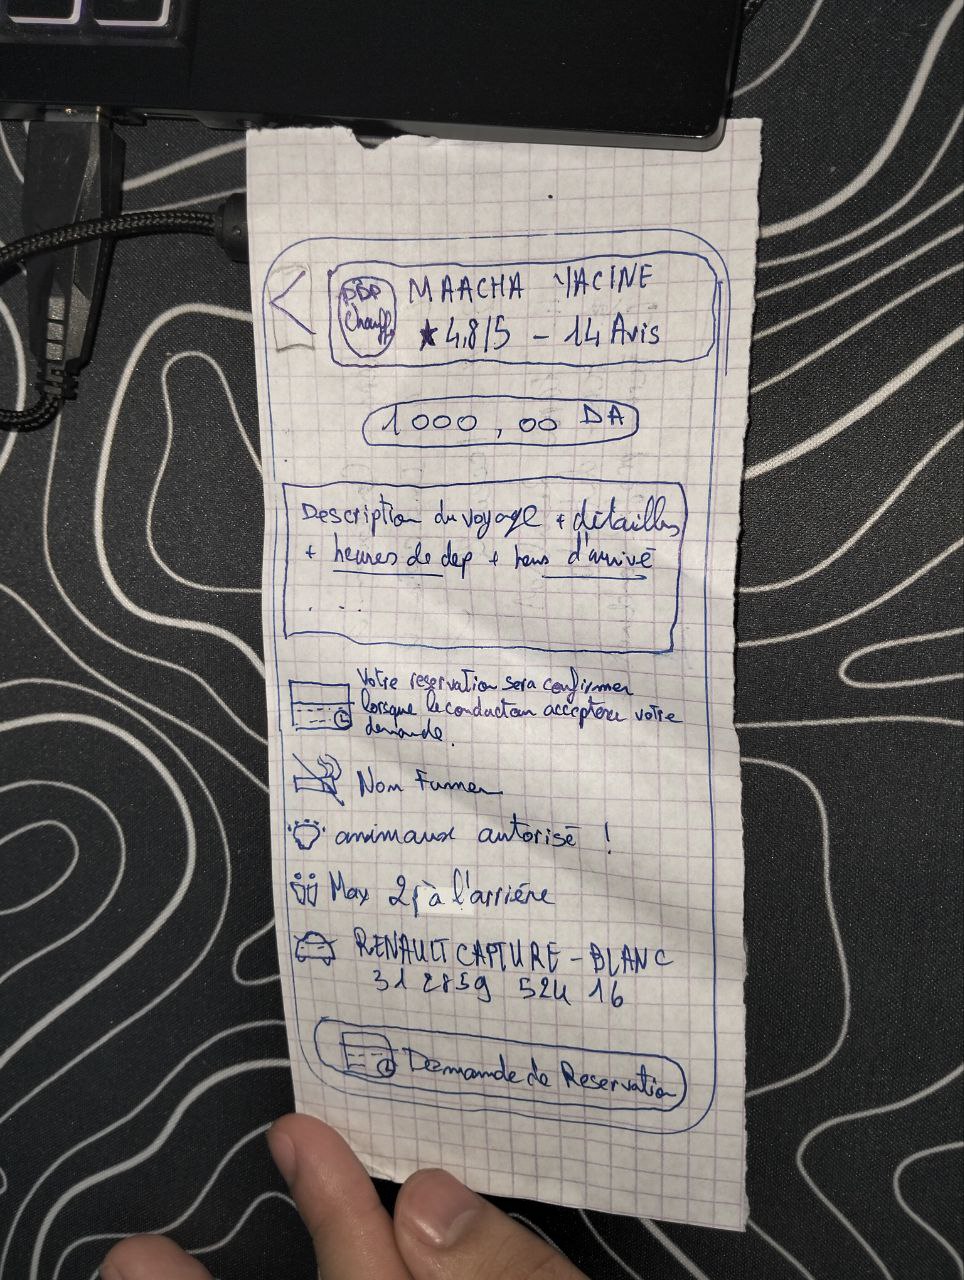 PDP
Chauff
MAACHA YACINE
★ 4,8/5 - 14 Avis
1000,00 DA
Description du voyage + détailles
+ heures de dep + heures d'arrivé
. ...
Votre reservation sera confirmer
lorsque le conducteur acceptera votre
demande.
Non Fumer
animaux autorisé !
Max 2 à l'arriére
RENAULT CAPTURE - BLANC
31 2859 524 16
Demande de Reservation